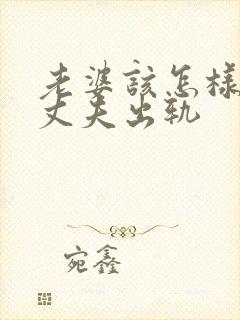 老婆該怎樣
丈夫出軌
宛鑫